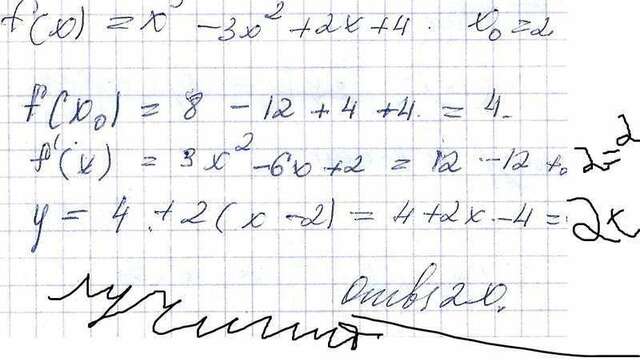 f(x) = x³ - 3x² + 2x + 4. x₀ = 2
f(x₀) = 8 - 12 + 4 + 4 = 4.
f'(x) = 3x² - 6x + 2 = 12 - 12 + 2 = 2
y = 4 + 2(x - 2) = 4 + 2x - 4 = 2x